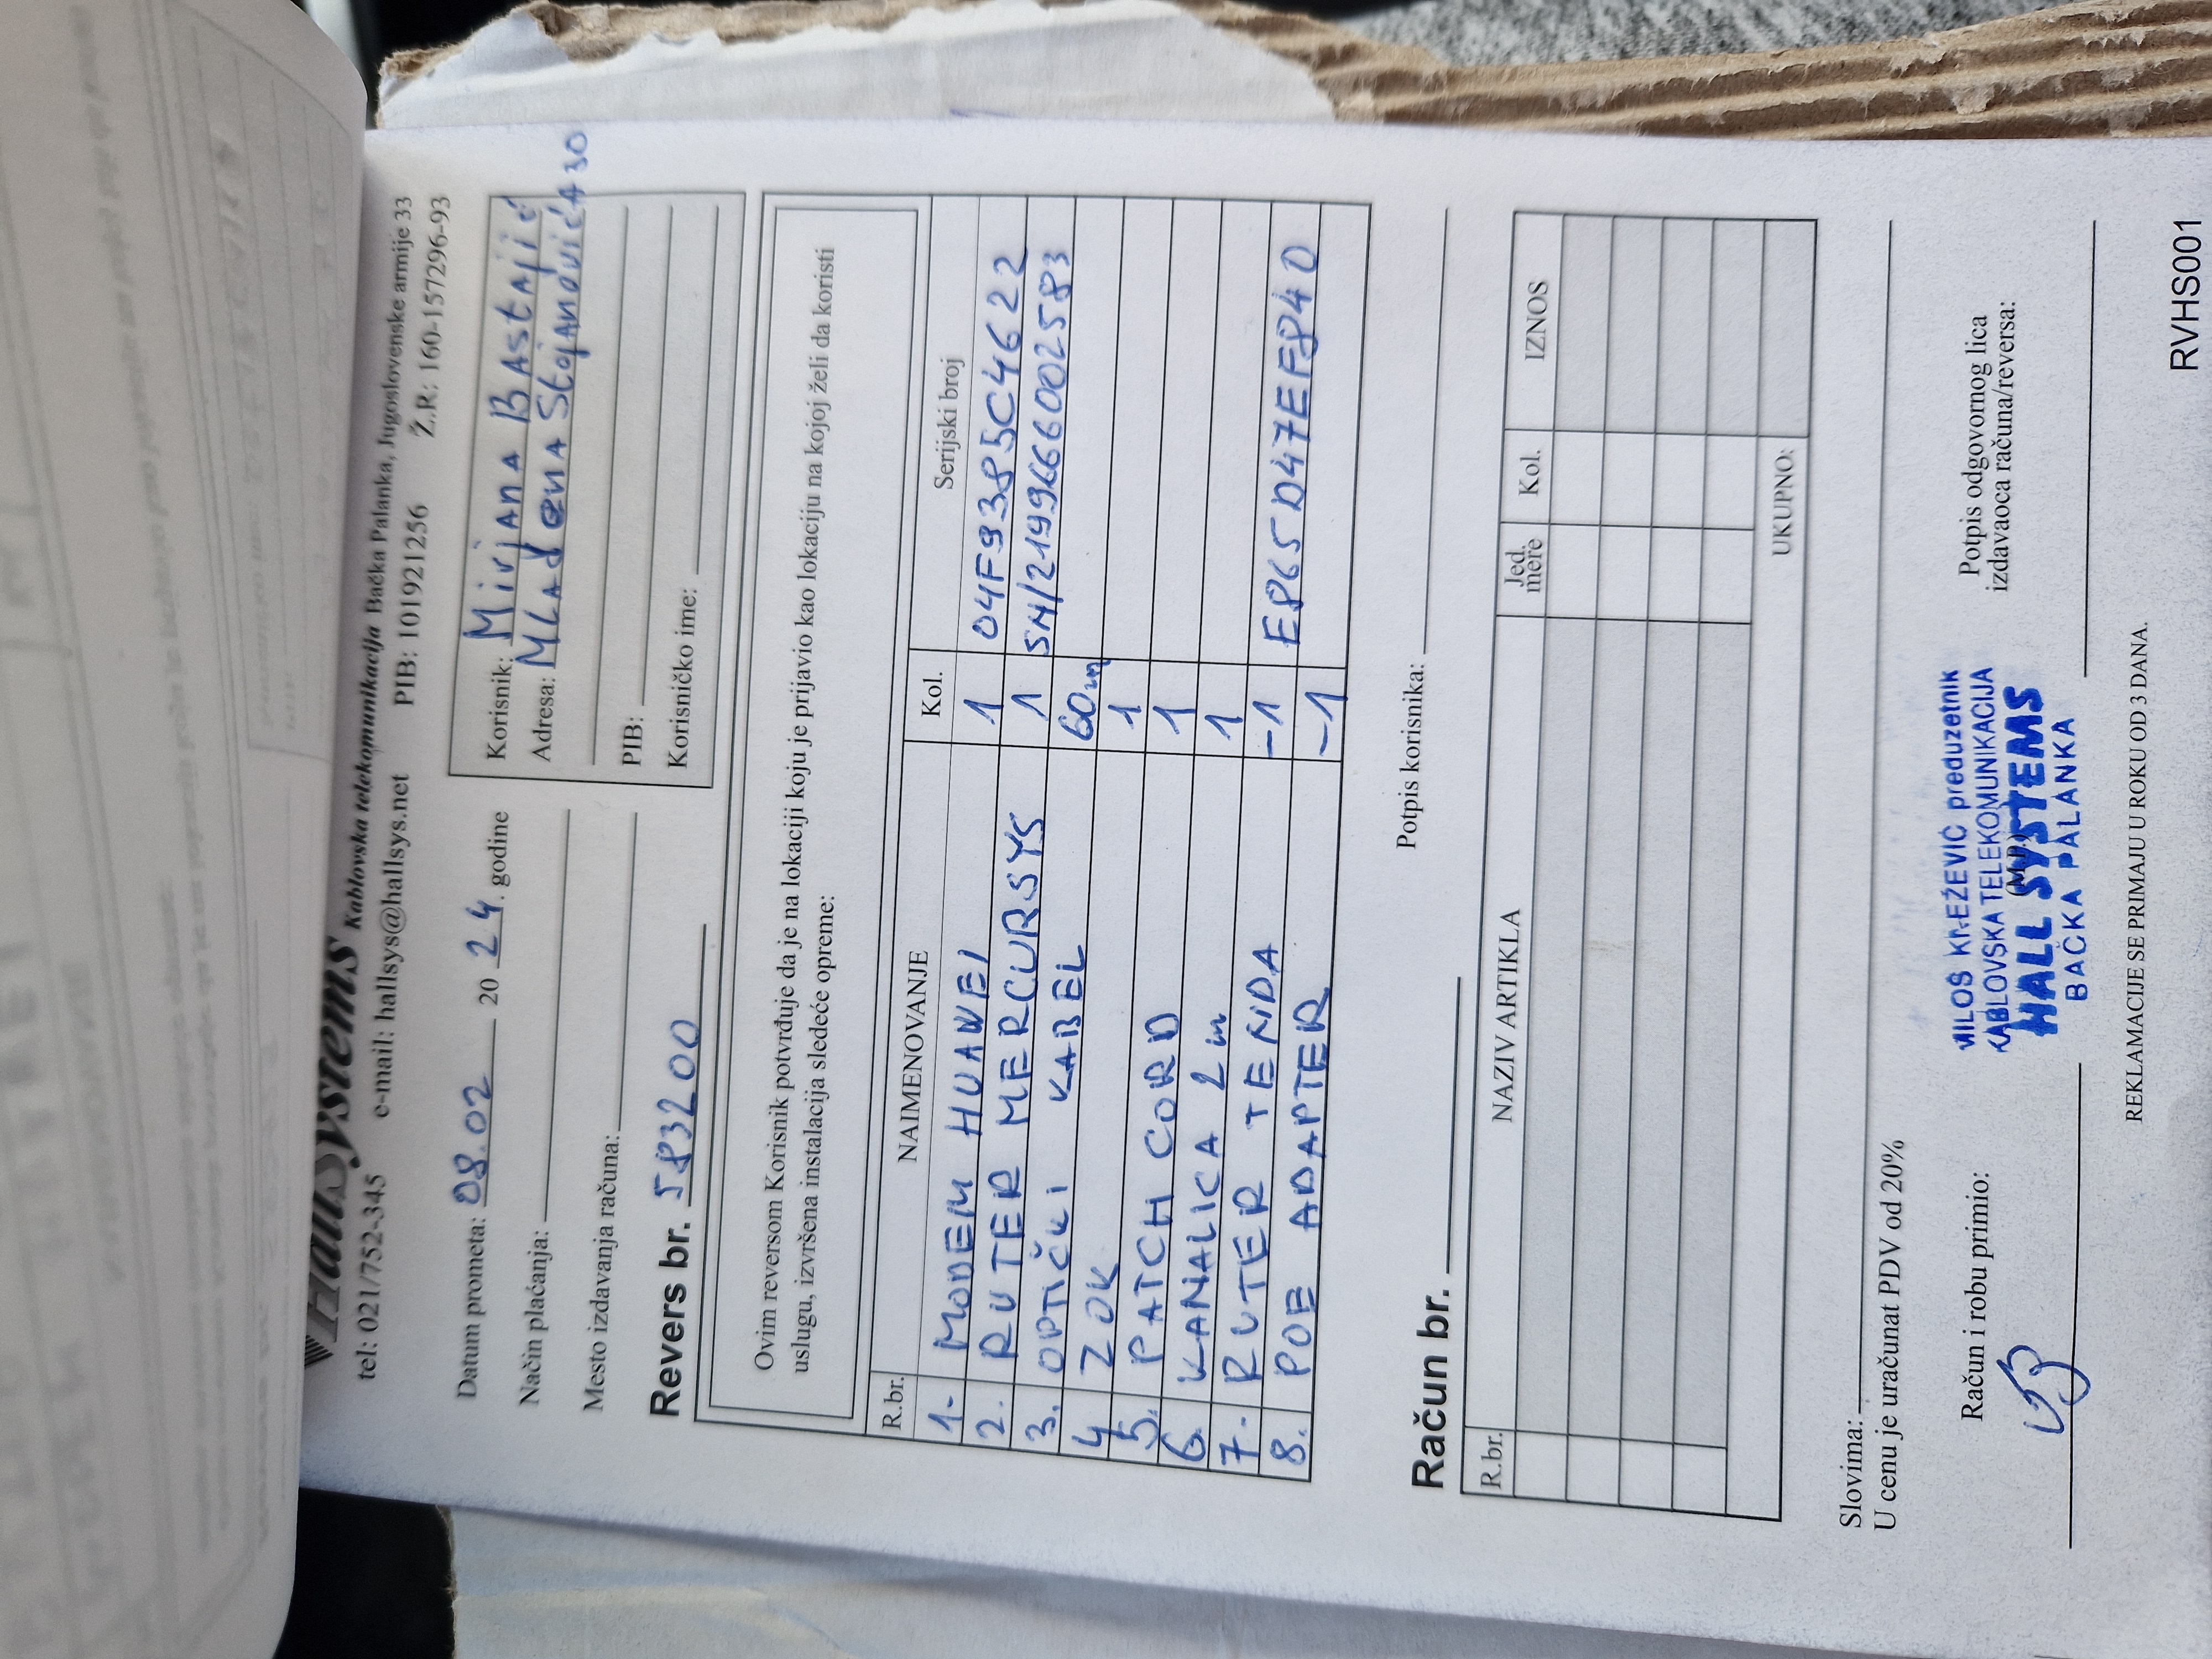 HallSystems Kablovska telekomunikacija Bačka Palanka, Jugoslovenske armije 33
tel: 021/752-345 e-mail: hallsys@hallsys.net PIB: 101921256 Ž.R.: 160-157296-93
Datum prometa: 08.02 20 24. godine
Način plaćanja:
Mesto izdavanja računa:
Revers br. 583200
Korisnik: Mirjana BAstAjić
Adresa: MLAdenA StojAnovićA 30
PIB:
Korisničko ime:
Ovim reversom Korisnik potvrđuje da je na lokaciji koju je prijavio kao lokaciju na kojoj želi da koristi
uslugu, izvršena instalacija sledeće opreme:
R.br. NAIMENOVANJE Kol. Serijski broj
1- MODEM HUAWEI 1 04F9385C4622
2. RUTER MERCURSYS 1 SN/2199666002583
3. OPTIČKI KABEL 60m
4 ZOK 1
5. PATCH CORD 1
6. KANALICA 2m 1
7. RUTER TENDA -1 E865D47EF840
8. POE ADAPTER -1
Potpis korisnika:
Račun br.
R.br. NAZIV ARTIKLA Jed. mere Kol. IZNOS
UKUPNO:
Slovima:
U cenu je uračunat PDV od 20%
Račun i robu primio:
MILOŠ KNEŽEVIĆ preduzetnik
KABLOVSKA TELEKOMUNIKACIJA
HALL SYSTEMS
BAČKA PALANKA
Potpis odgovornog lica
izdavaoca računa/reversa:
REKLAMACIJE SE PRIMAJU U ROKU OD 3 DANA.
RVHS001